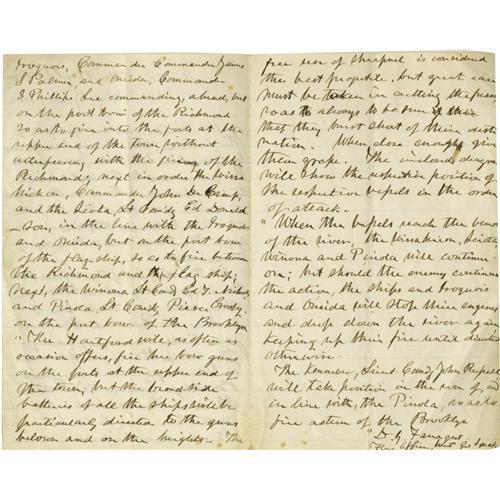 Iroquois, Commander Commander James
S Palmer, and Oneida, Commander
S Phillips Lee commanding, ahead, but
on the port bow of the Richmond
so as to fire into the forts at the
upper end of the town without
interfering with the firing of the
Richmond; next in order the Wissa
hickon, Commander John De Camp,
and the Sciota, Lt Comdg Ed Donald
-son, in the line with the Iroquois
and Oneida, but on the port bow
of the flag ship, so as to fire between
the Richmond and the flag ship;
next, the Winona Lt Comdg Ed T. Nichols
and Pinola, Lt Comdg Pierce Crosby
on the port bow of the Brooklyn
"The Hartford will, as often as
occasion offers, fire her bow guns
on the forts at the upper end of
the town; but the broad-side
batteries of all the ships will be
particularly directed to the guns
below and on the heights - The
free use of shrapnel is considered
the best projectile, but great care
must be taken in cutting the fuses
so as to always to be sure
that they burst short of their desti
nation. When close enough give
them grape. The inclosed diagram
will show the respective position of
the respective vessels in the order
of attack.
"When the vessels reach the bend
of the river, the Wissahickon, Sciota
Winona and Pinola will continue
on; but should the enemy continue
the action, the ships and Iroquois
and Oneida will stop their engines
and drop down the river again
keeping up their fire until directed
otherwise.
The Kennebec, Lieut Comdg John Russell
will take position in the rear of, and
in line with, the Pinola, so as to
fire astern of the Brooklyn
"D. G. Farragut
Flag Officer, West